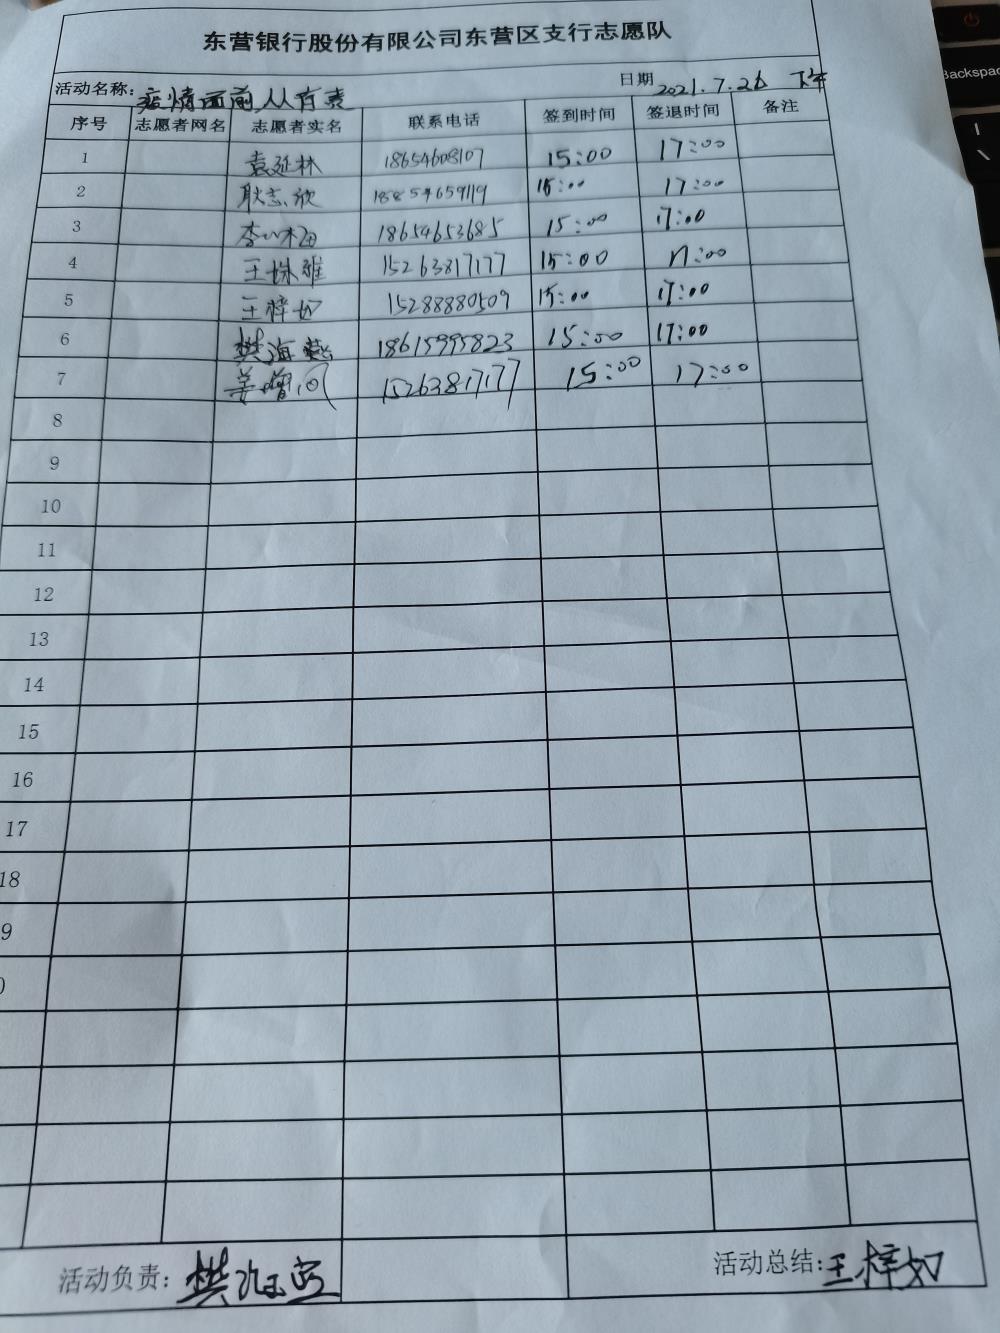 东营银行股份有限公司东营区支行志愿队
活动名称：疫情面前人人有责 日期 2021.7.26 下午
序号 志愿者网名 志愿者实名 联系电话 签到时间 签退时间 备注
1 袁延林 18654608107 15:00 17:00
2 耿志欣 18854659119 15:00 17:00
3 18654653685 15:00 17:00
4 王姝雅 15263817177 15:00 17:00
5 王梓如 15288880509 15:00 17:00
6 樊海燕 18615995823 15:00 17:00
7 姜增 15263817177 15:00 17:00
8
9
10
11
12
13
14
15
16
17
18
9
0
活动负责：樊海 活动总结：王梓如
Backspac